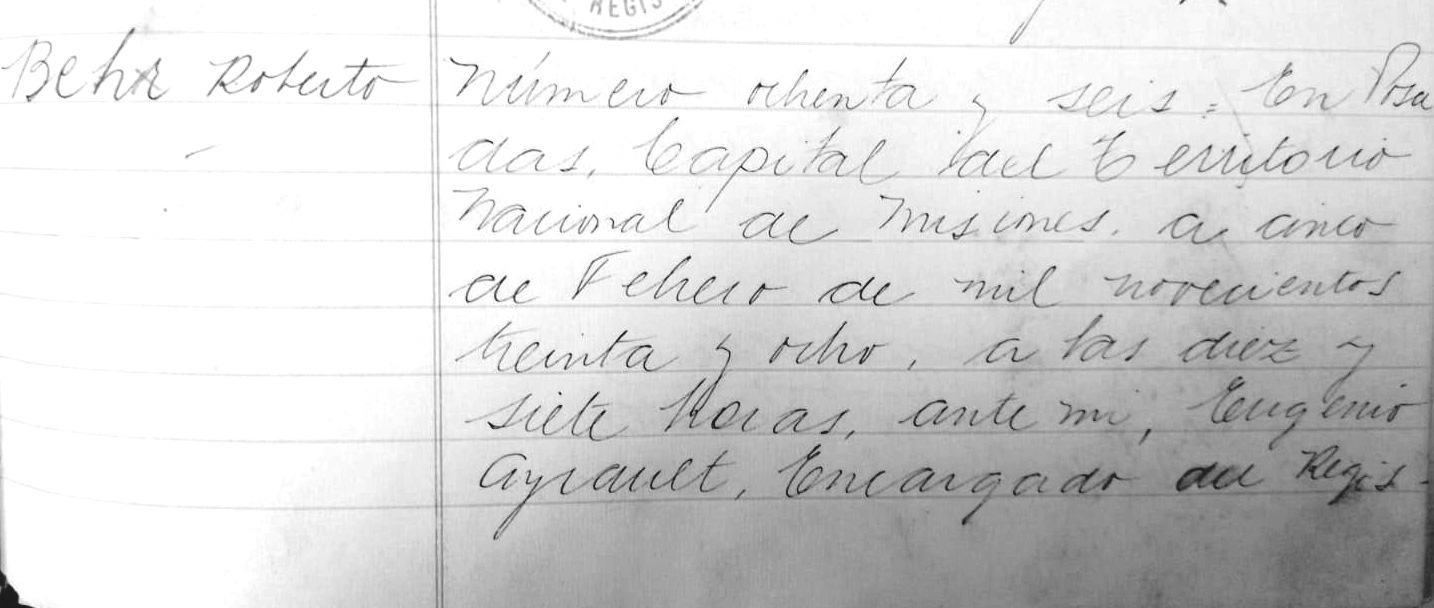 REGIS
Behr Roberto
Número ochenta y seis = En Posa
das, Capital del Territorio
Nacional de Misiones, a cinco
de Febrero de mil novecientos
treinta y ocho, a las diez y
siete horas, ante mi, Eugenio
Ayrault, Encargado del Regis-